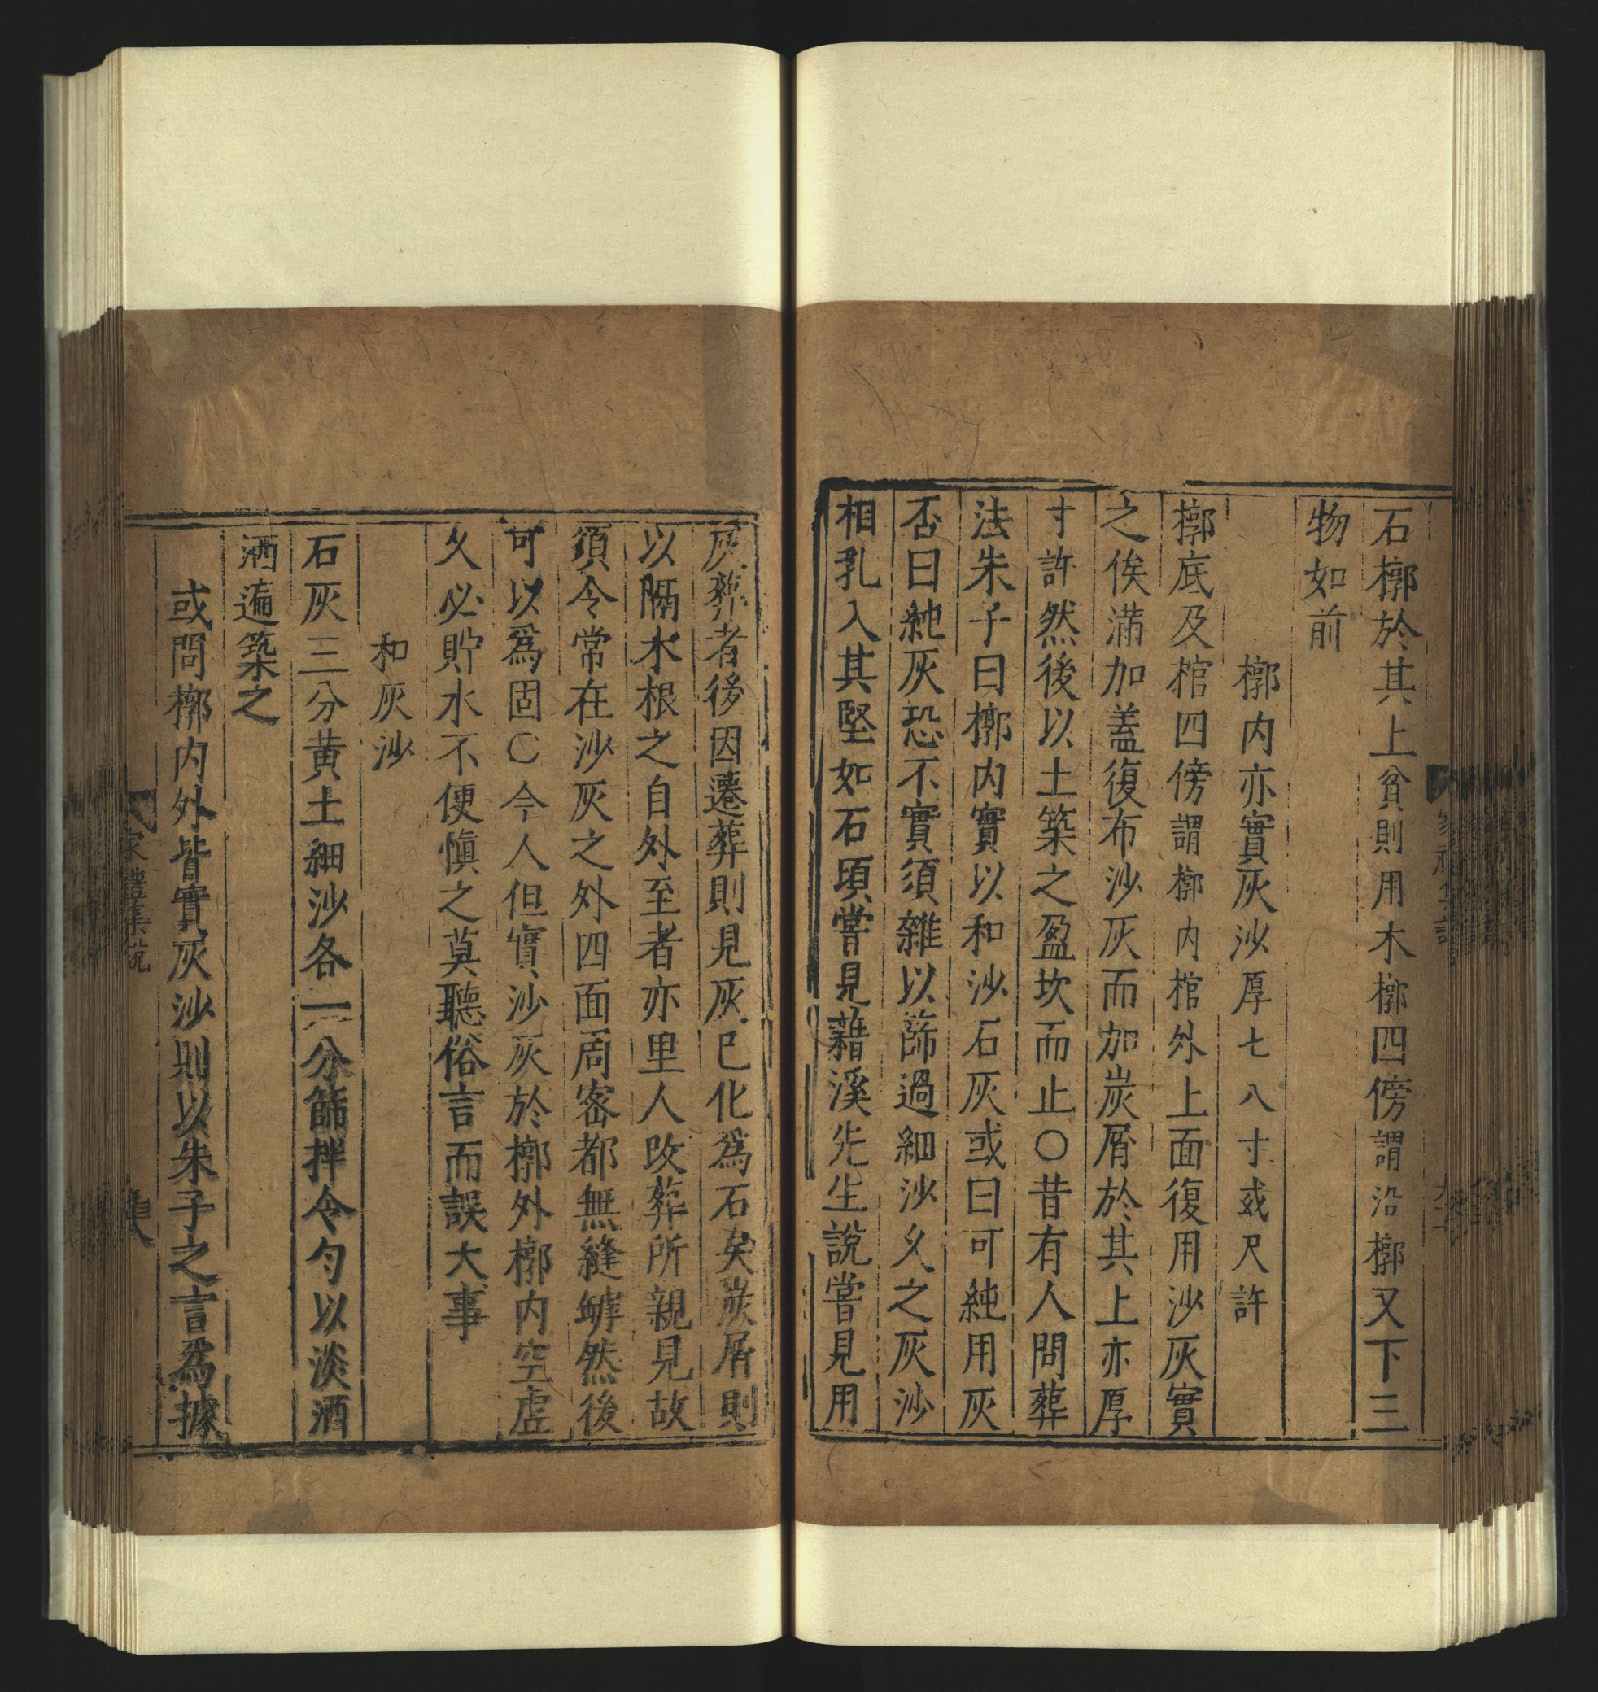 石槨於其上貧則用木槨四傍謂沿槨又下三
物如前
槨内亦實灰沙厚七八寸或尺許
槨底及棺四傍謂槨内棺外上面復用沙灰實
之俟滿加蓋復布沙灰而加炭屑於其上亦厚
寸許然後以土築之盈坎而止○昔有人問葬
法朱子曰槨内實以和沙石灰或曰可純用灰
否曰純灰恐不實須雜以篩過細沙久之灰沙
相乳入其堅如石頃嘗見藉溪先生說嘗見用
灰葬者後因遷葬則見灰已化爲石矣炭屑則
以隔木根之自外至者亦里人改葬所親見故
須令常在沙灰之外四面周宻都無縫罅然後
可以爲固○今人但實沙灰於槨外槨内空虚
久必貯水不便愼之莫聽俗言而誤大事
和灰沙
石灰三分黄土細沙各一分篩拌令勻以淡酒
洒遍築之
或問槨内外皆實灰沙則以朱子之言爲據
家禮集說